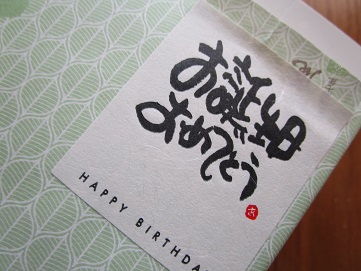 お誕生日
おめでとう
HAPPY BIRTHDA